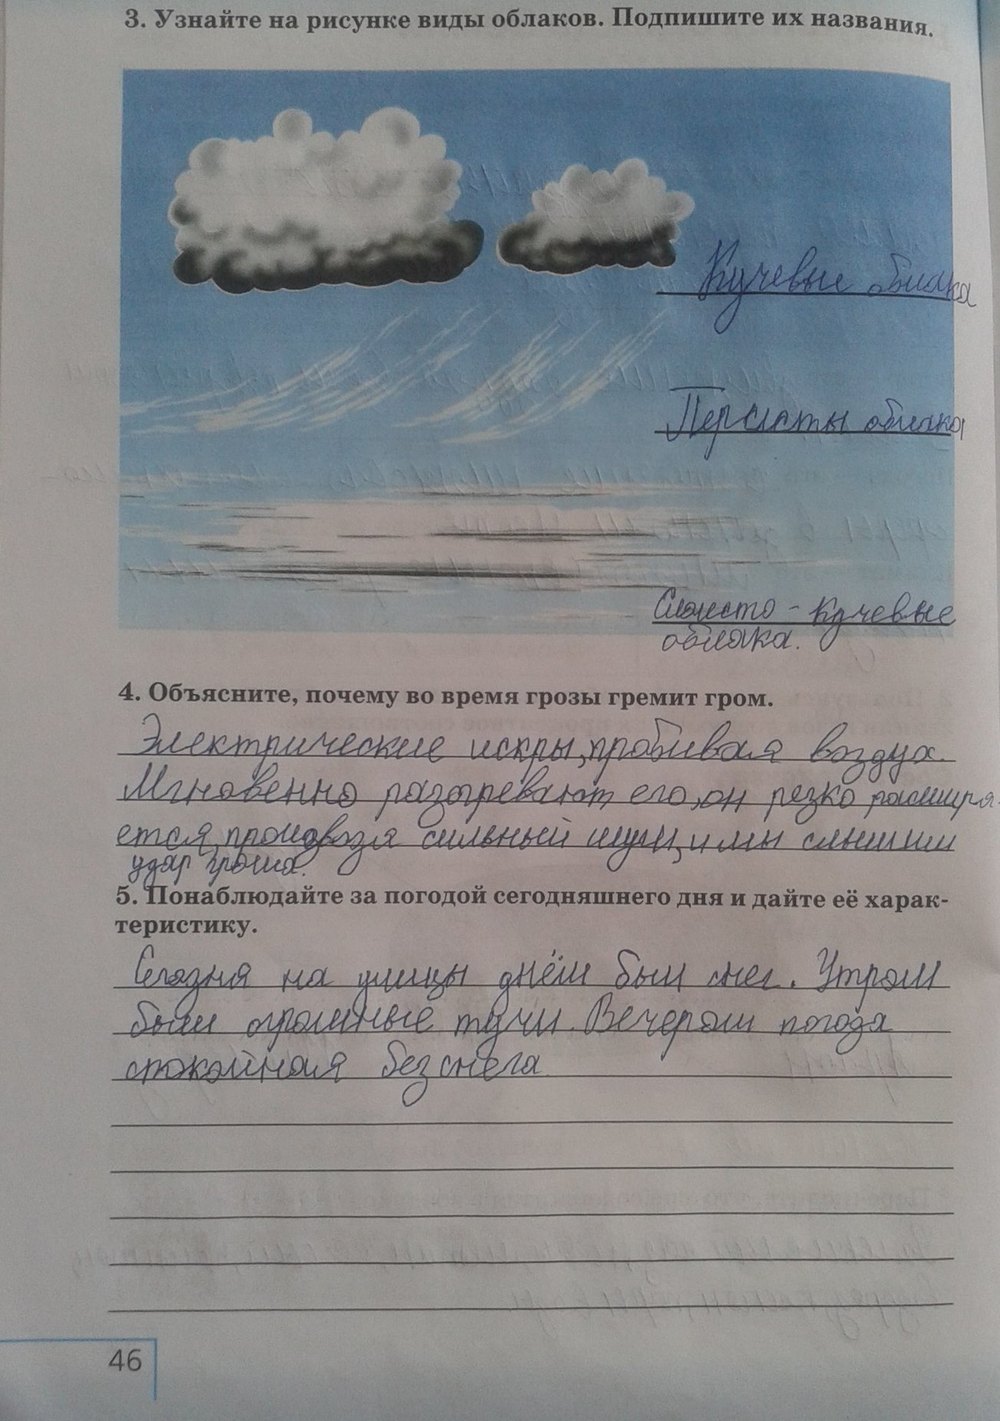 3. Узнайте на рисунке виды облаков. Подпишите их названия.
Кучевые облака
Перисты облака
Слоисто - Кучевые
облака.
4. Объясните, почему во время грозы гремит гром.
Электрические искры, пробивая воздух.
Мгновенно разогревают его, он резко расширя-
ется, производя сильный шум, и мы слышим
удар грома.
5. Понаблюдайте за погодой сегодняшнего дня и дайте её харак-
теристику.
Сегодня на улицы днём был снег. Утром
были огромные тучи. Вечером погода
спокойная без снега
46